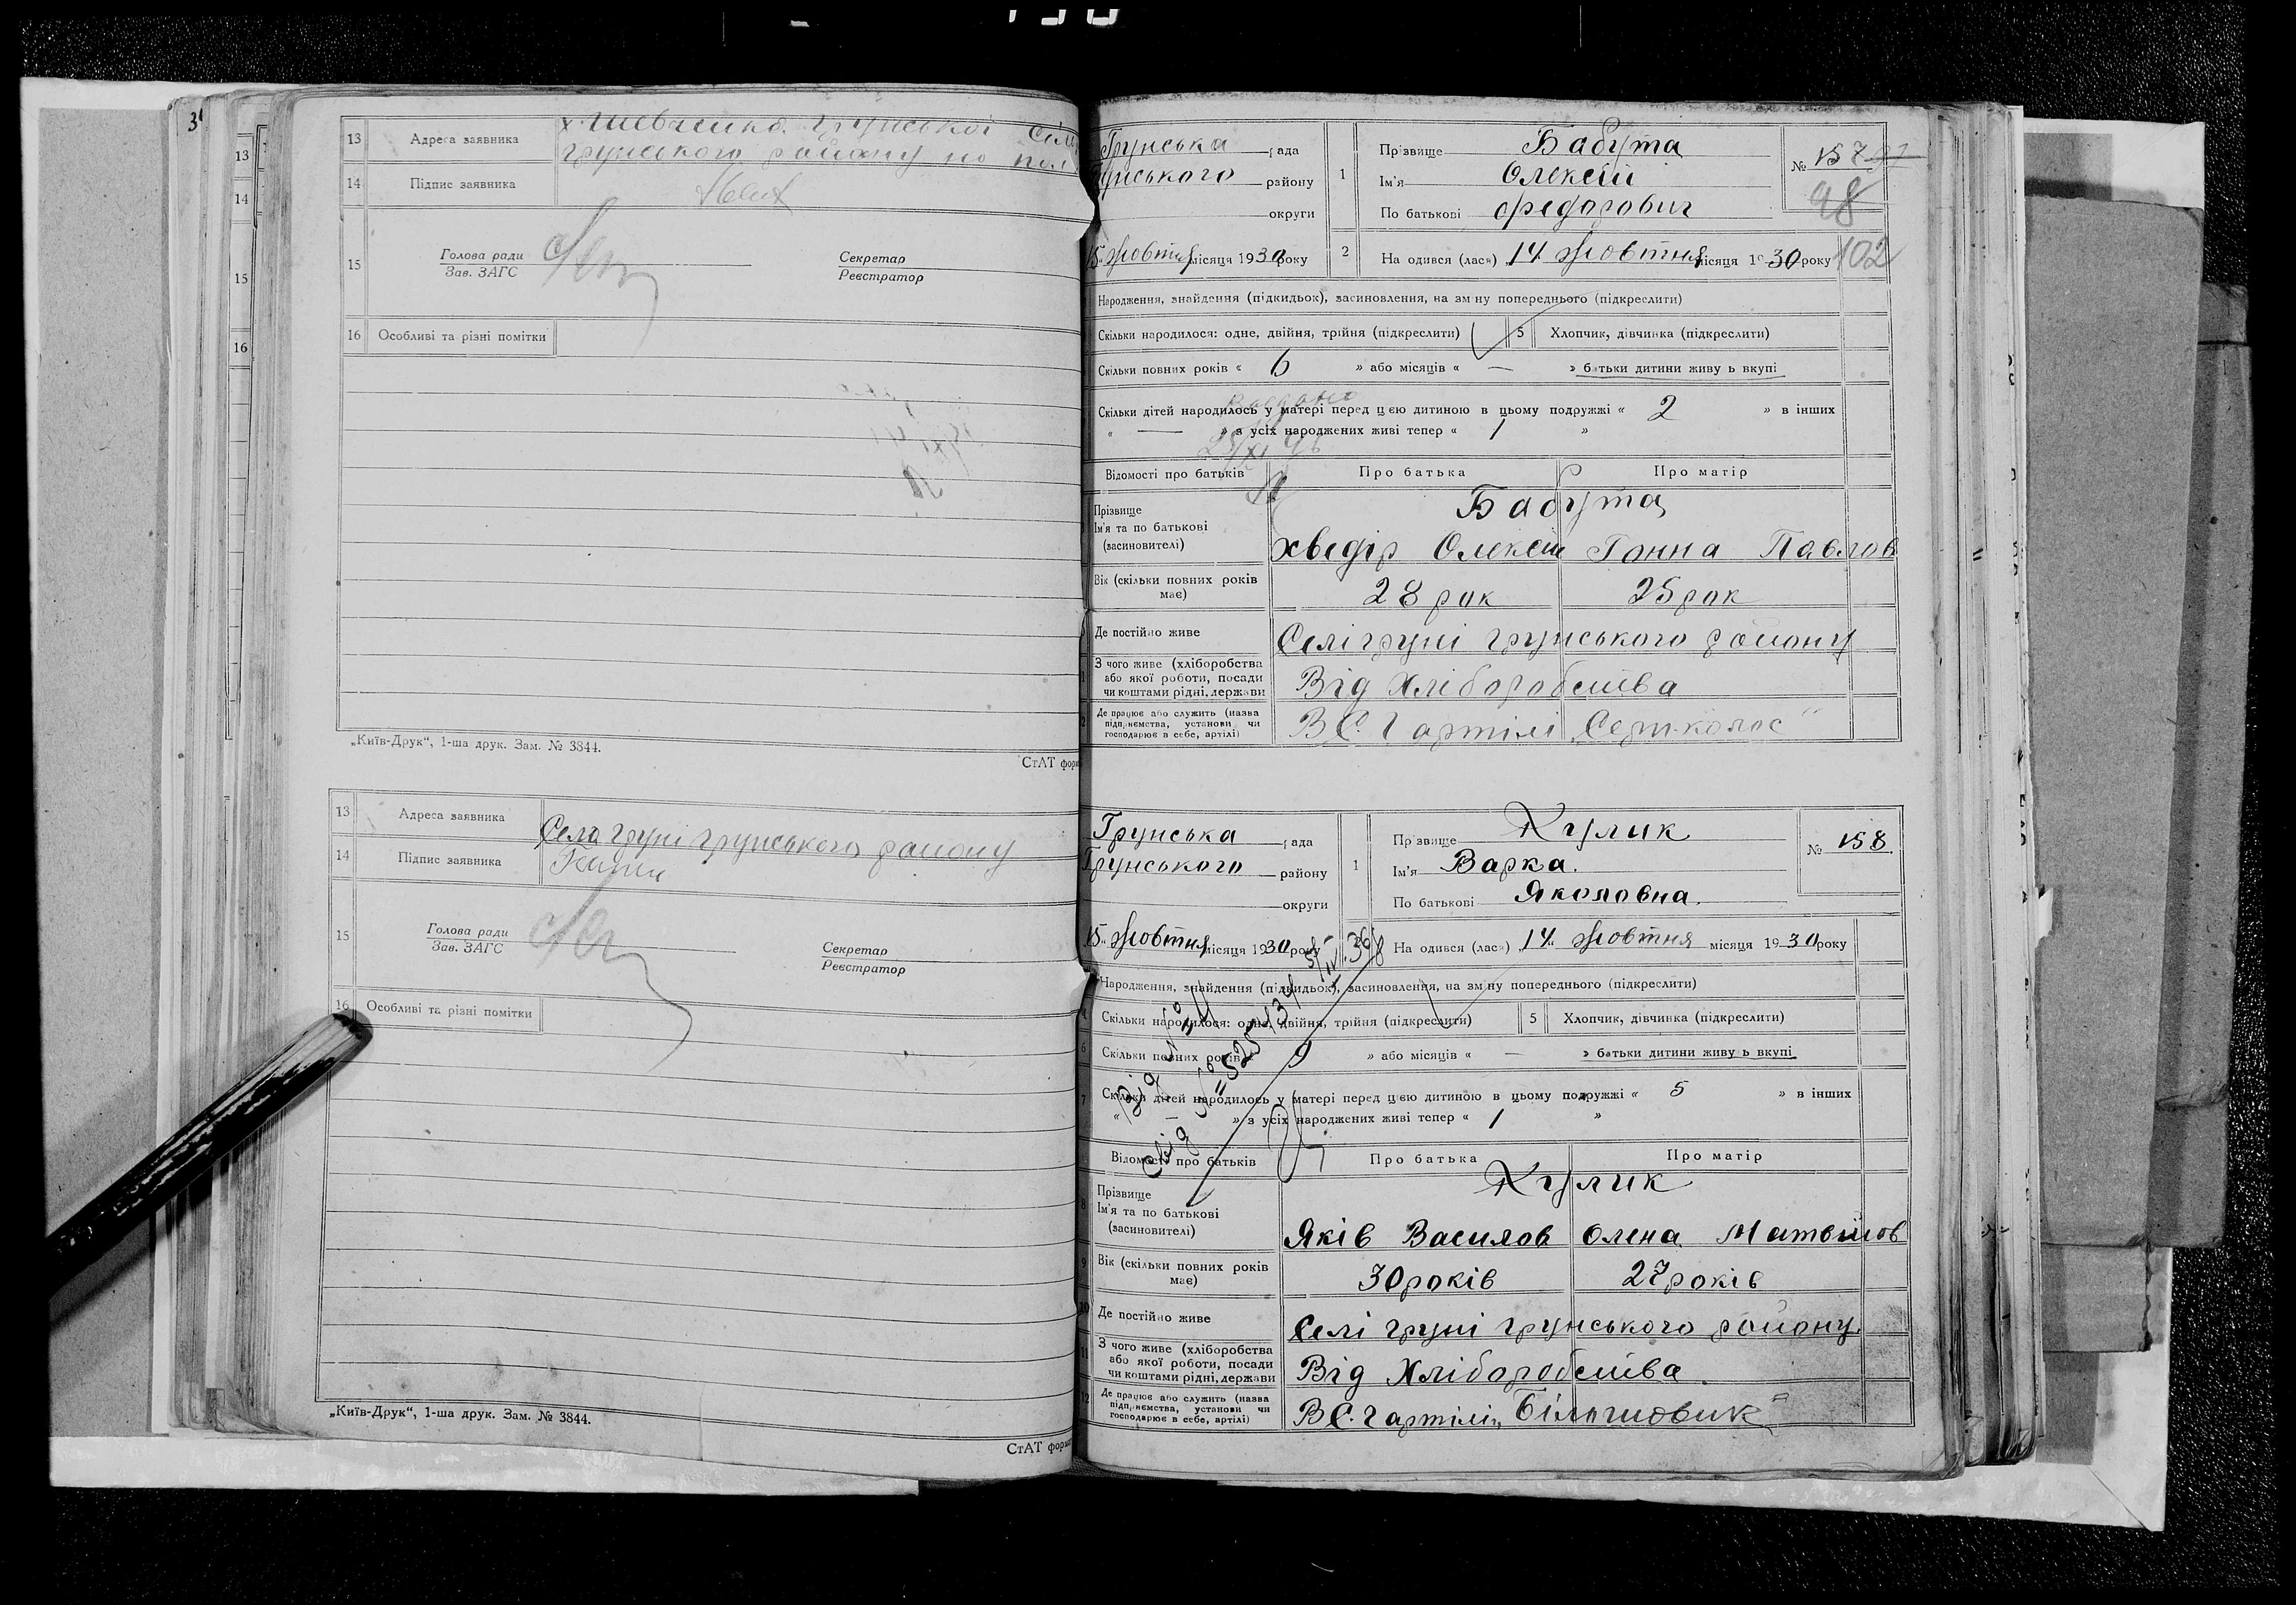 13 Адреса заявника х. Шевченка Грунської Сіл
Грунського району по пол
14 Підпис заявника
15 Голова ради
Зав. ЗАГС
Секретар
Реєстратор
16 Особливі та різні помітки
„Київ-Друк“, 1-ша друк. Зам. № 3844.
СтАТ форм
13 Адреса заявника Село Груні Грунського району
14 Підпис заявника
15 Голова ради
Зав. ЗАГС
Секретар
Реєстратор
16 Особливі та різні помітки
„Київ-Друк“, 1-ша друк. Зам. № 3844.
СтАТ форм
Грунська рада
Грунського району
округи
15 Жовтня місяця 1930 року
1 Прізвище Бабута
Ім'я Олексій
По батькові Федорович
№ 157
98
102
2 На одився (лася) 14 Жовтня місяця 1930 року
Народження, знайдення (підкидьок), засиновлення, на зм ну попереднього (підкреслити)
Скільки народилося: одне, двійня, трійня (підкреслити) 5 Хлопчик, дівчинка (підкреслити)
Скільки повних років « 6 » або місяців « — » батьки дитини живу ь вкупі
Скільки дітей народилось у матері перед цією дитиною в цьому подружжі « 2 » в інших
« — » з усіх народжених живі тепер « 1 »
Відомості про батьків Про батька Про матір
Прізвище
Ім'я та по батькові
(засиновителі)
Бабута
Хведір Олексій Ганна Павлов
Вік (скільки повних років має) 28 рок 25 рок
Де постійно живе Селі Груні Грунського району
З чого живе (хліборобства або якої роботи, посади чи коштами рідні, держави Від Хліборобства
Де працює або служить (назва підприємства, установи чи господарює в себе, артілі) В С. Г артілі „Серп-колос“
Грунська рада
Грунського району
округи
15 Жовтня місяця 1930 року
1 Прізвище Кулик
Ім'я Варка.
По батькові Якововна.
№ 158.
На одився (лася) 14 Жовтня місяця 1930 року
Народження, знайдення (підкидьок), засиновлення, на зм ну попереднього (підкреслити)
4 Скільки народилося: одне, двійня, трійня (підкреслити) 5 Хлопчик, дівчинка (підкреслити)
6 Скільки повних років 9 » або місяців « — » батьки дитини живу ь вкупі
7 Скільки дітей народилось у матері перед цією дитиною в цьому подружжі « 5 » в інших
« — » з усіх народжених живі тепер « 1 »
Відомості про батьків Про батька Про матір
8 Прізвище
Ім'я та по батькові
(засиновителі)
Кулик
Яків Васильов Олена Матвійов
9 Вік (скільки повних років має) 30 років 27 років
10 Де постійно живе Селі Груні Грунського району
11 З чого живе (хліборобства або якої роботи, посади чи коштами рідні, держави Від Хліборобства.
12 Де працює або служить (назва підприємства, установи чи господарює в себе, артілі) В С. Г артілі „Більшовик“